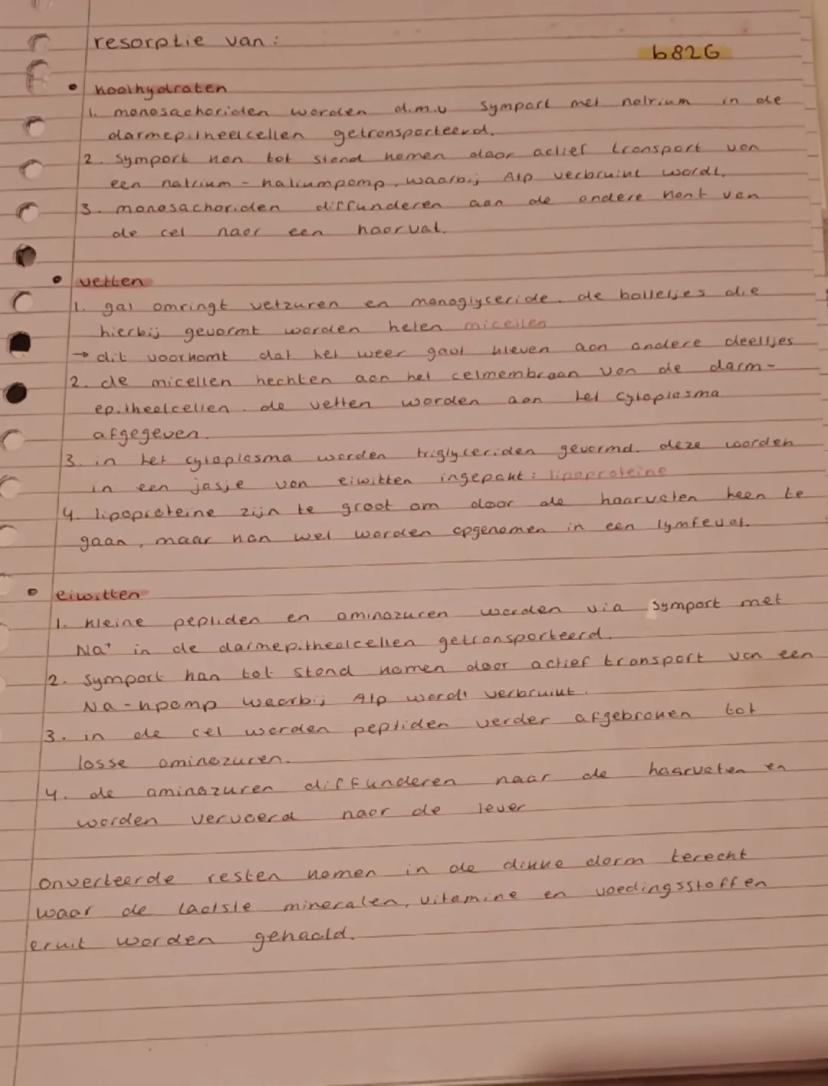 resorptie van:
b82G
• koolhydraten
1. monosachariden worden d.m.v sympart met natrium in de
darmepitheelcellen getransporteerd.
2. sympart kan tot stand komen door actief transport van
een natrium-kaliumpomp, waarbij Atp verbruikt wordt.
3. monosachariden diffunderen aan de andere kant van
de cel naar een haarvat.
• vetten
1. gal omringt vetzuren en monoglyceride. de balletjes die
hierbij gevormt worden heten micellen
→ dit voorkomt dat het weer gaat kleven aan andere deeltjes
2. de micellen hechten aan het celmembraan van de darm-
epitheelcellen. de vetten worden aan het cytoplasma
afgegeven.
3. in het cytoplasma worden triglyceriden gevormd. deze worden
in een jasje van eiwitten ingepakt: lipoproteine
4. lipoproteine zijn te groot om door de haarvaten heen te
gaan, maar kan wel worden opgenomen in een lymfevat.
• eiwitten
1. kleine peptiden en aminozuren worden via sympart met
Na⁺ in de darmepitheelcellen getransporteerd.
2. sympart kan tot stand komen door actief transport van een
Na-kpomp waarbij Atp wordt verbruikt.
3. in de cel worden peptiden verder afgebroken tot
losse aminozuren.
4. de aminozuren diffunderen naar de haarvaten en
worden vervoerd naar de lever
onverteerde resten komen in de dikke darm terecht
waar de laatste mineralen, vitamine en voedingsstoffen
eruit worden gehaald.